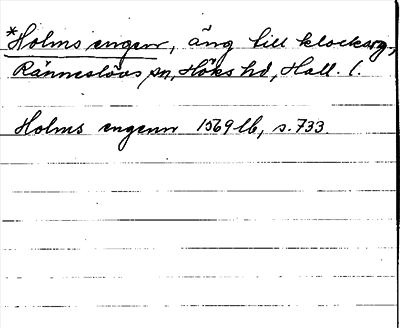 *Holms engenn, äng till klockarg.,
Ränneslövs sn, Höks hd, Hall. l.
Holms engenn 1569 lb, s. 733.